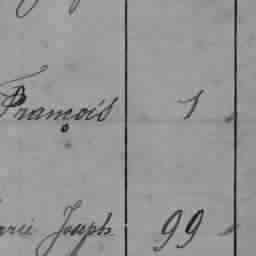 François 1 "
Joseph 99 "